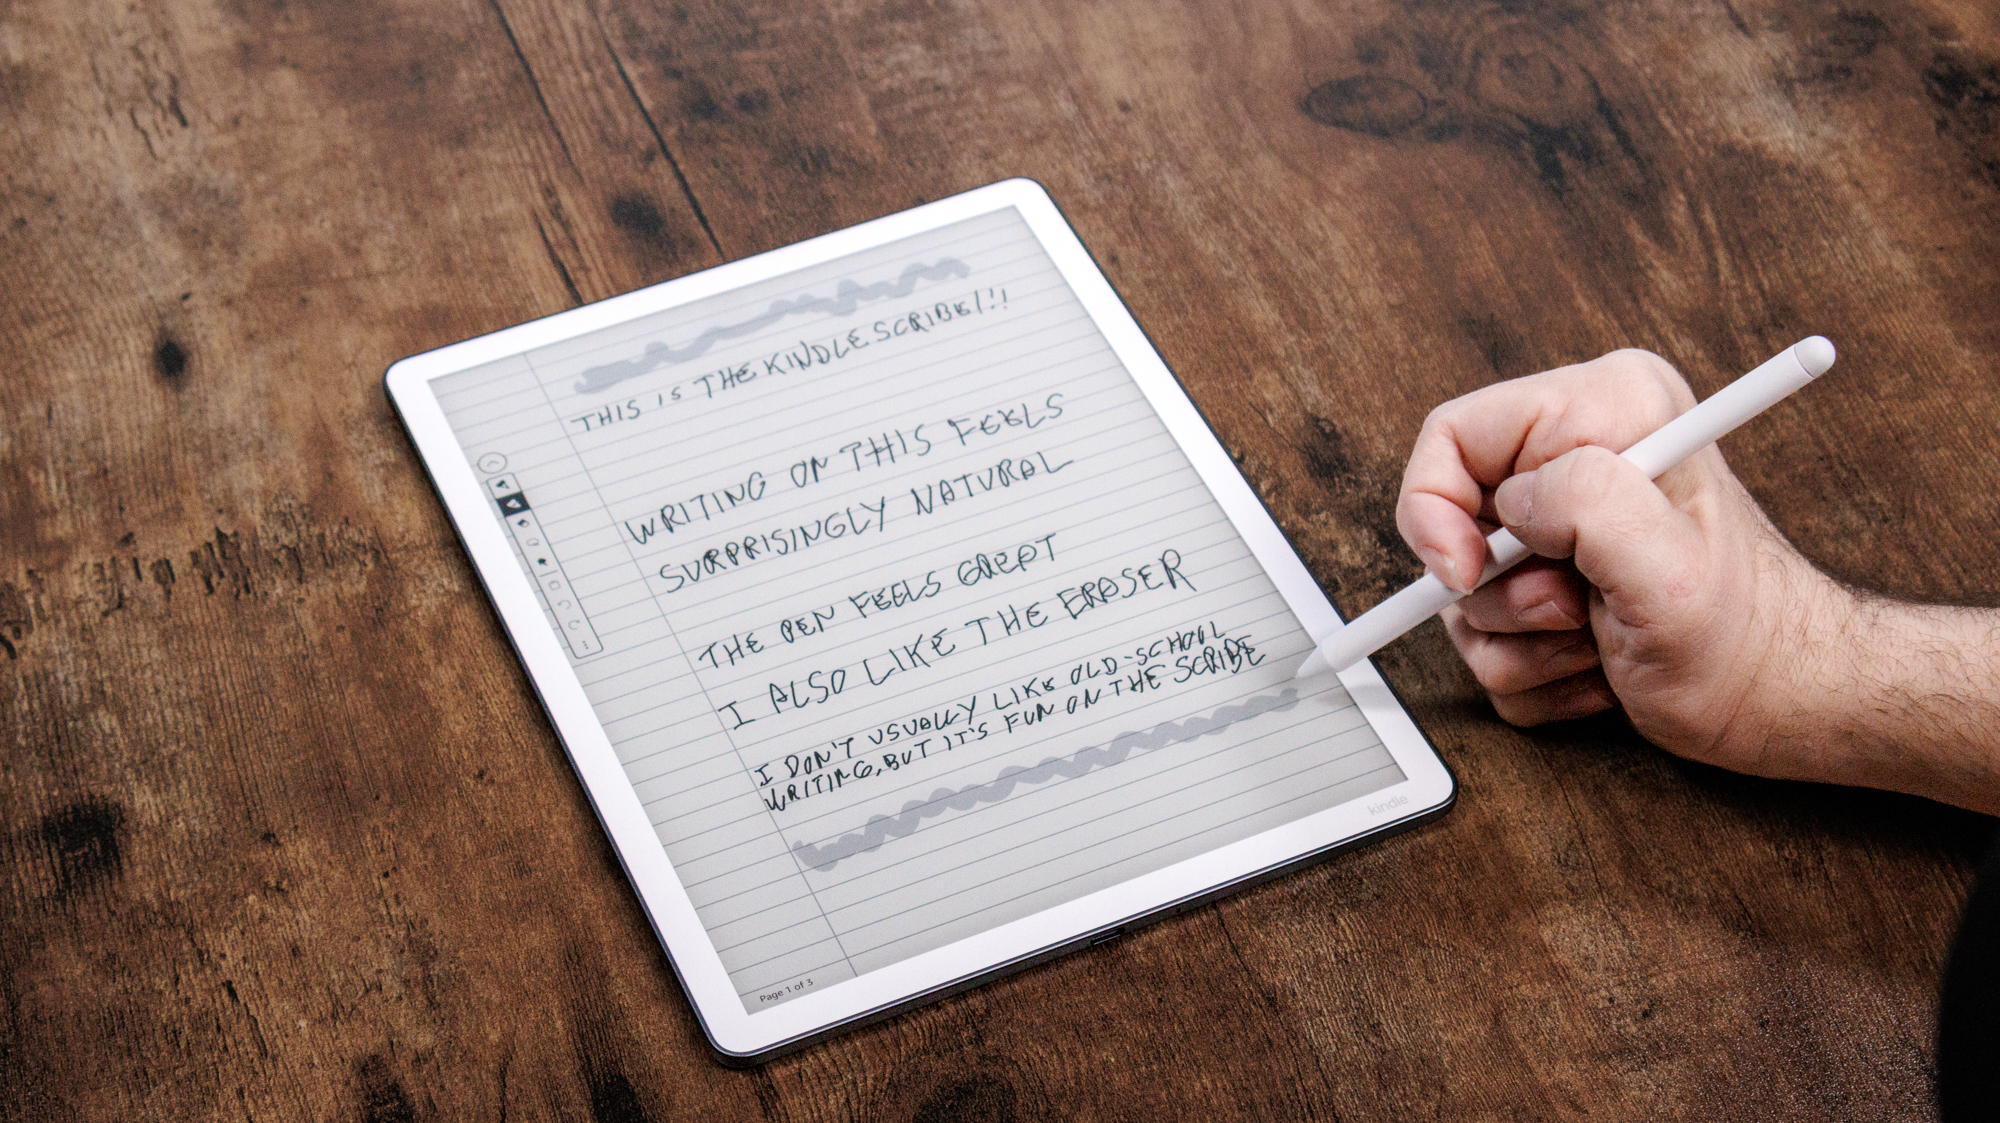 THIS IS THE KINDLE SCRIBE!!!
WRITING ON THIS FEELS
SURPRISINGLY NATURAL
THE PEN FEELS GREAT
I ALSO LIKE THE ERASER
I DON'T USUALLY LIKE OLD-SCHOOL
WRITING, BUT IT'S FUN ON THE SCRIBE
Page 1 of 3
kindle